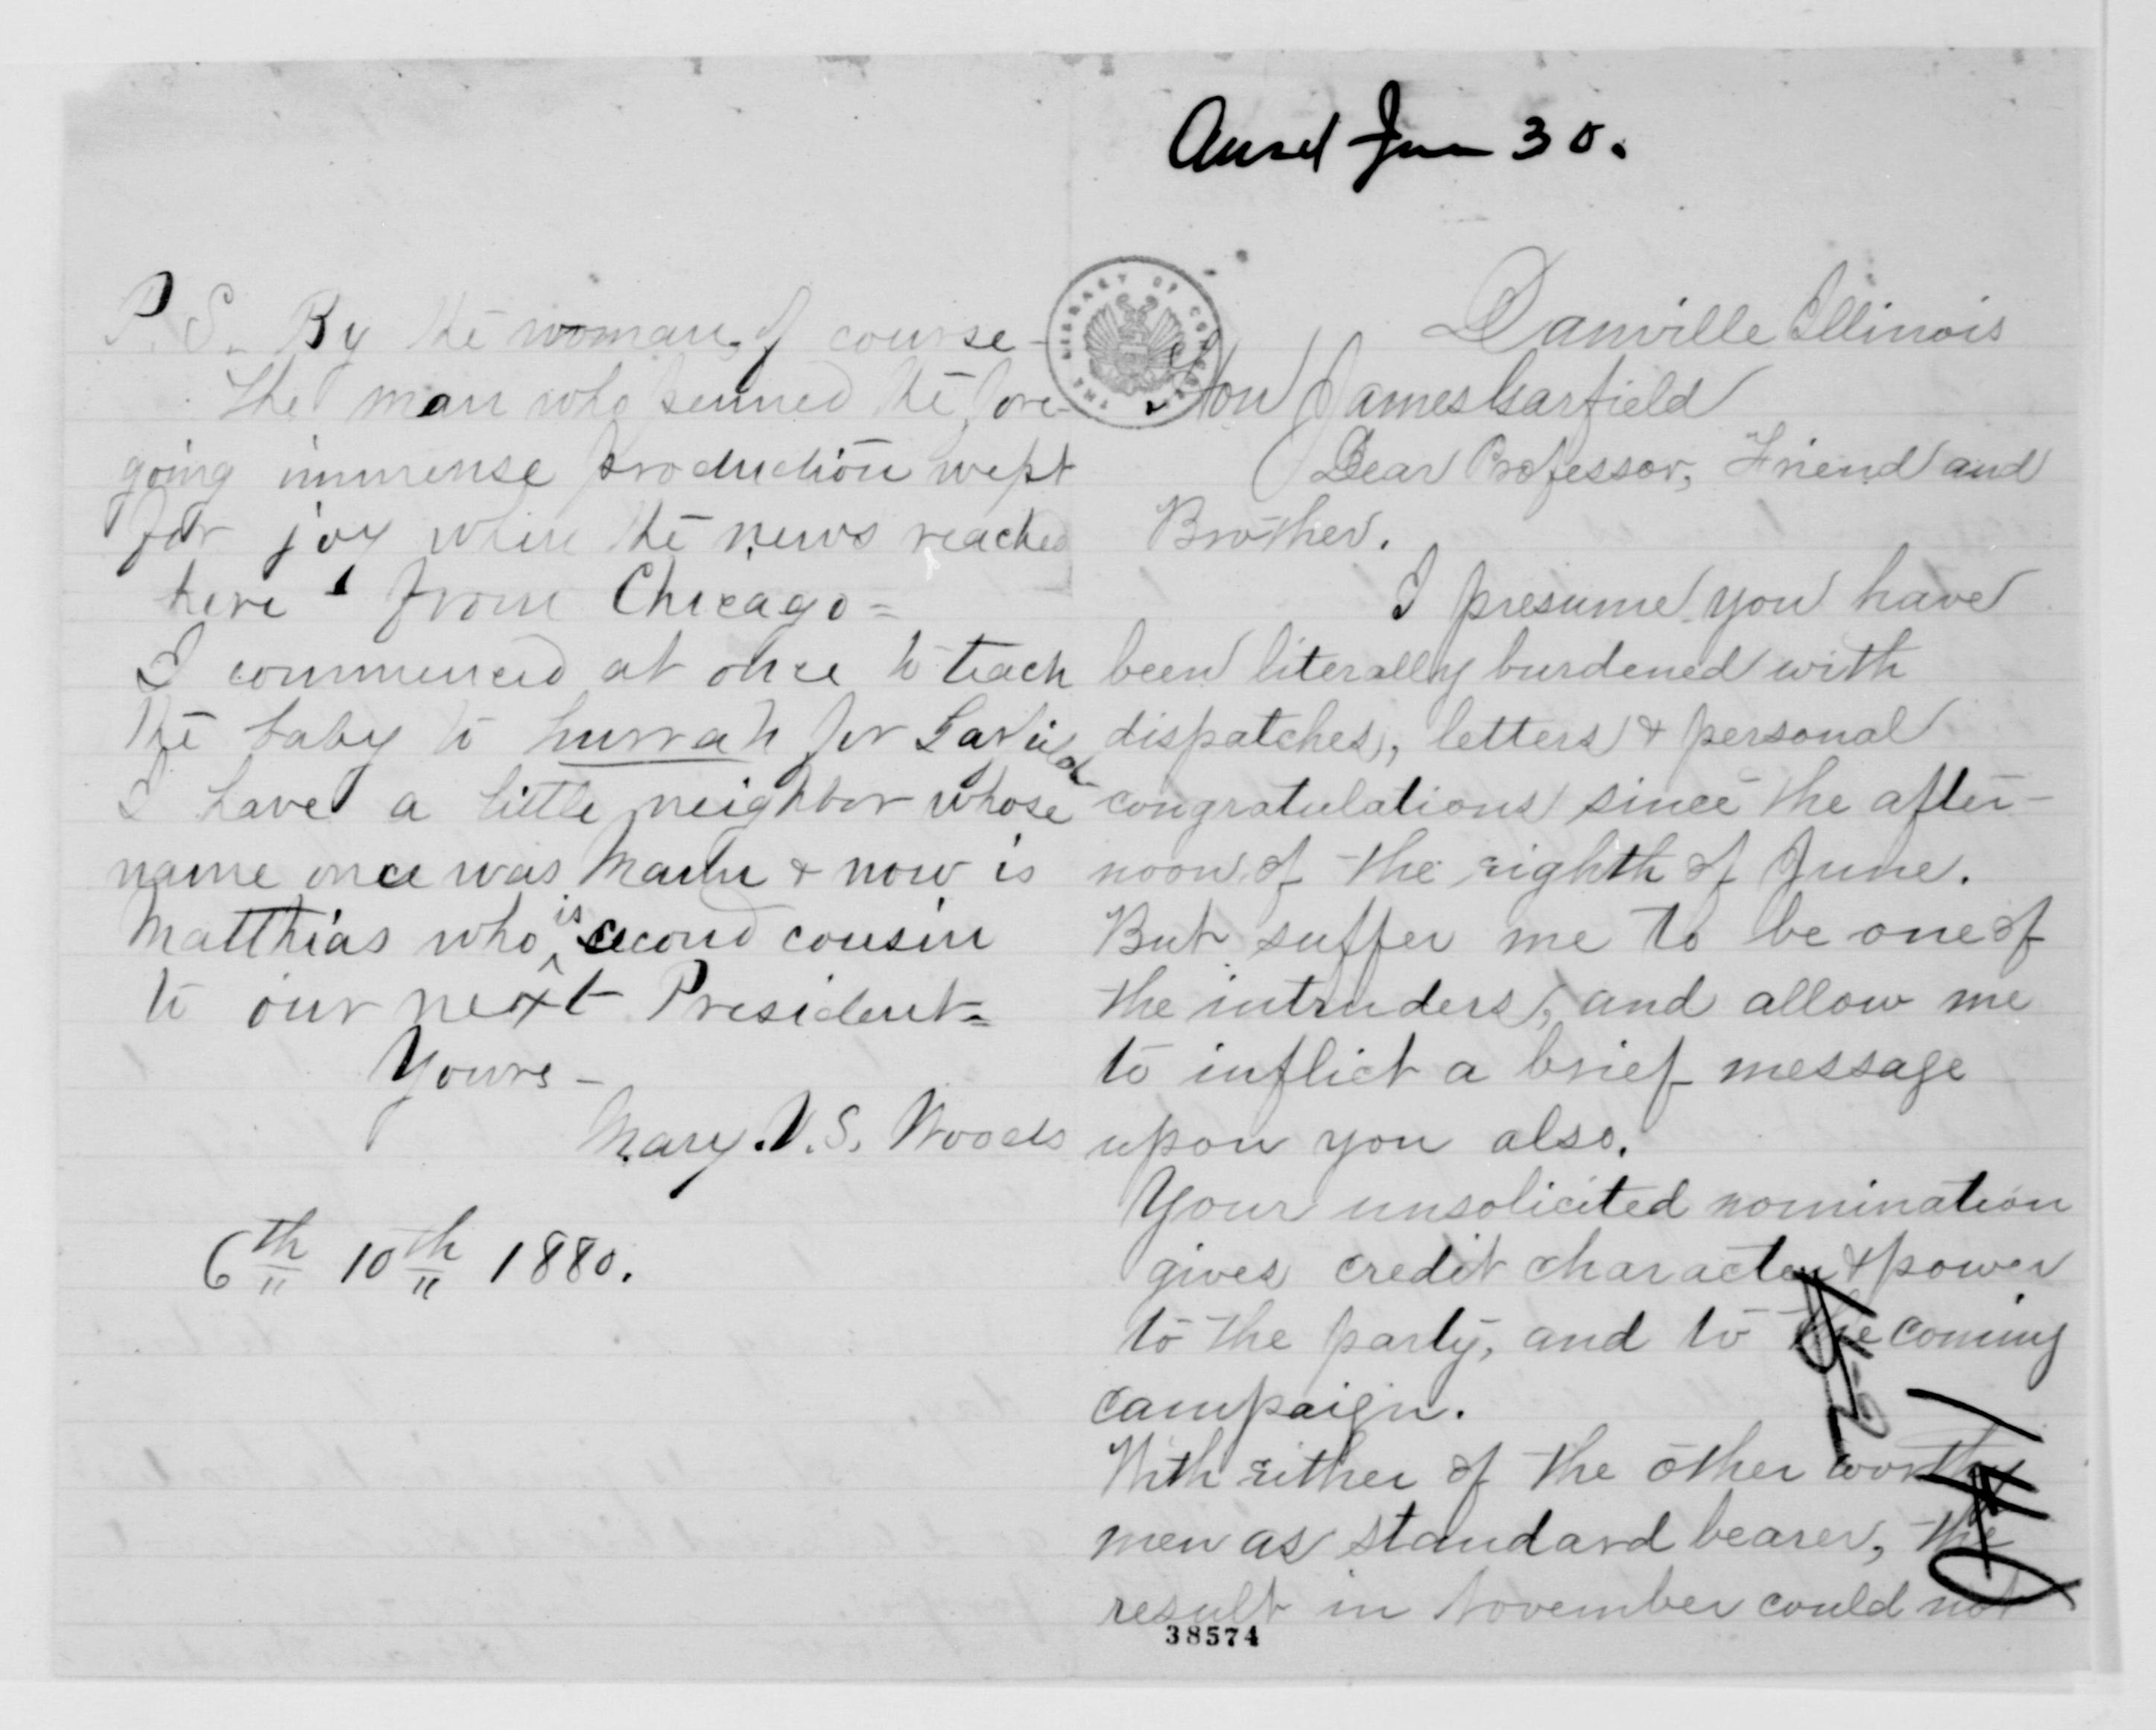 Ansd Jun 30.
Danville Illinois
Hon James Garfield
Dear Professor, Friend and
Brother.
I presume you have
been literally burdened with
dispatches, letters & personal
congratulations since the after-
noon of the eighth of June.
But suffer me to be one of
the intruders, and allow me
to inflict a brief message
upon you also.
Your unsolicited nomination
gives credit character & power
to the party, and to the coming
campaign.
With either of the other worthy
men as standard bearer, the
result in November could not
38574
P.S. By the woman, of course-
The man who penned the fore-
going immense production wept
for joy when the news reached
here from Chicago=
I commenced at once to teach
the baby to hurrah for Garfield
I have a little neighbor whose
name once was & now is
Matthias who is second cousin
to our next President=
Yours-
Mary. V. S. Woods
6th 10th 1880.
THE LIBRARY OF CONGRESS